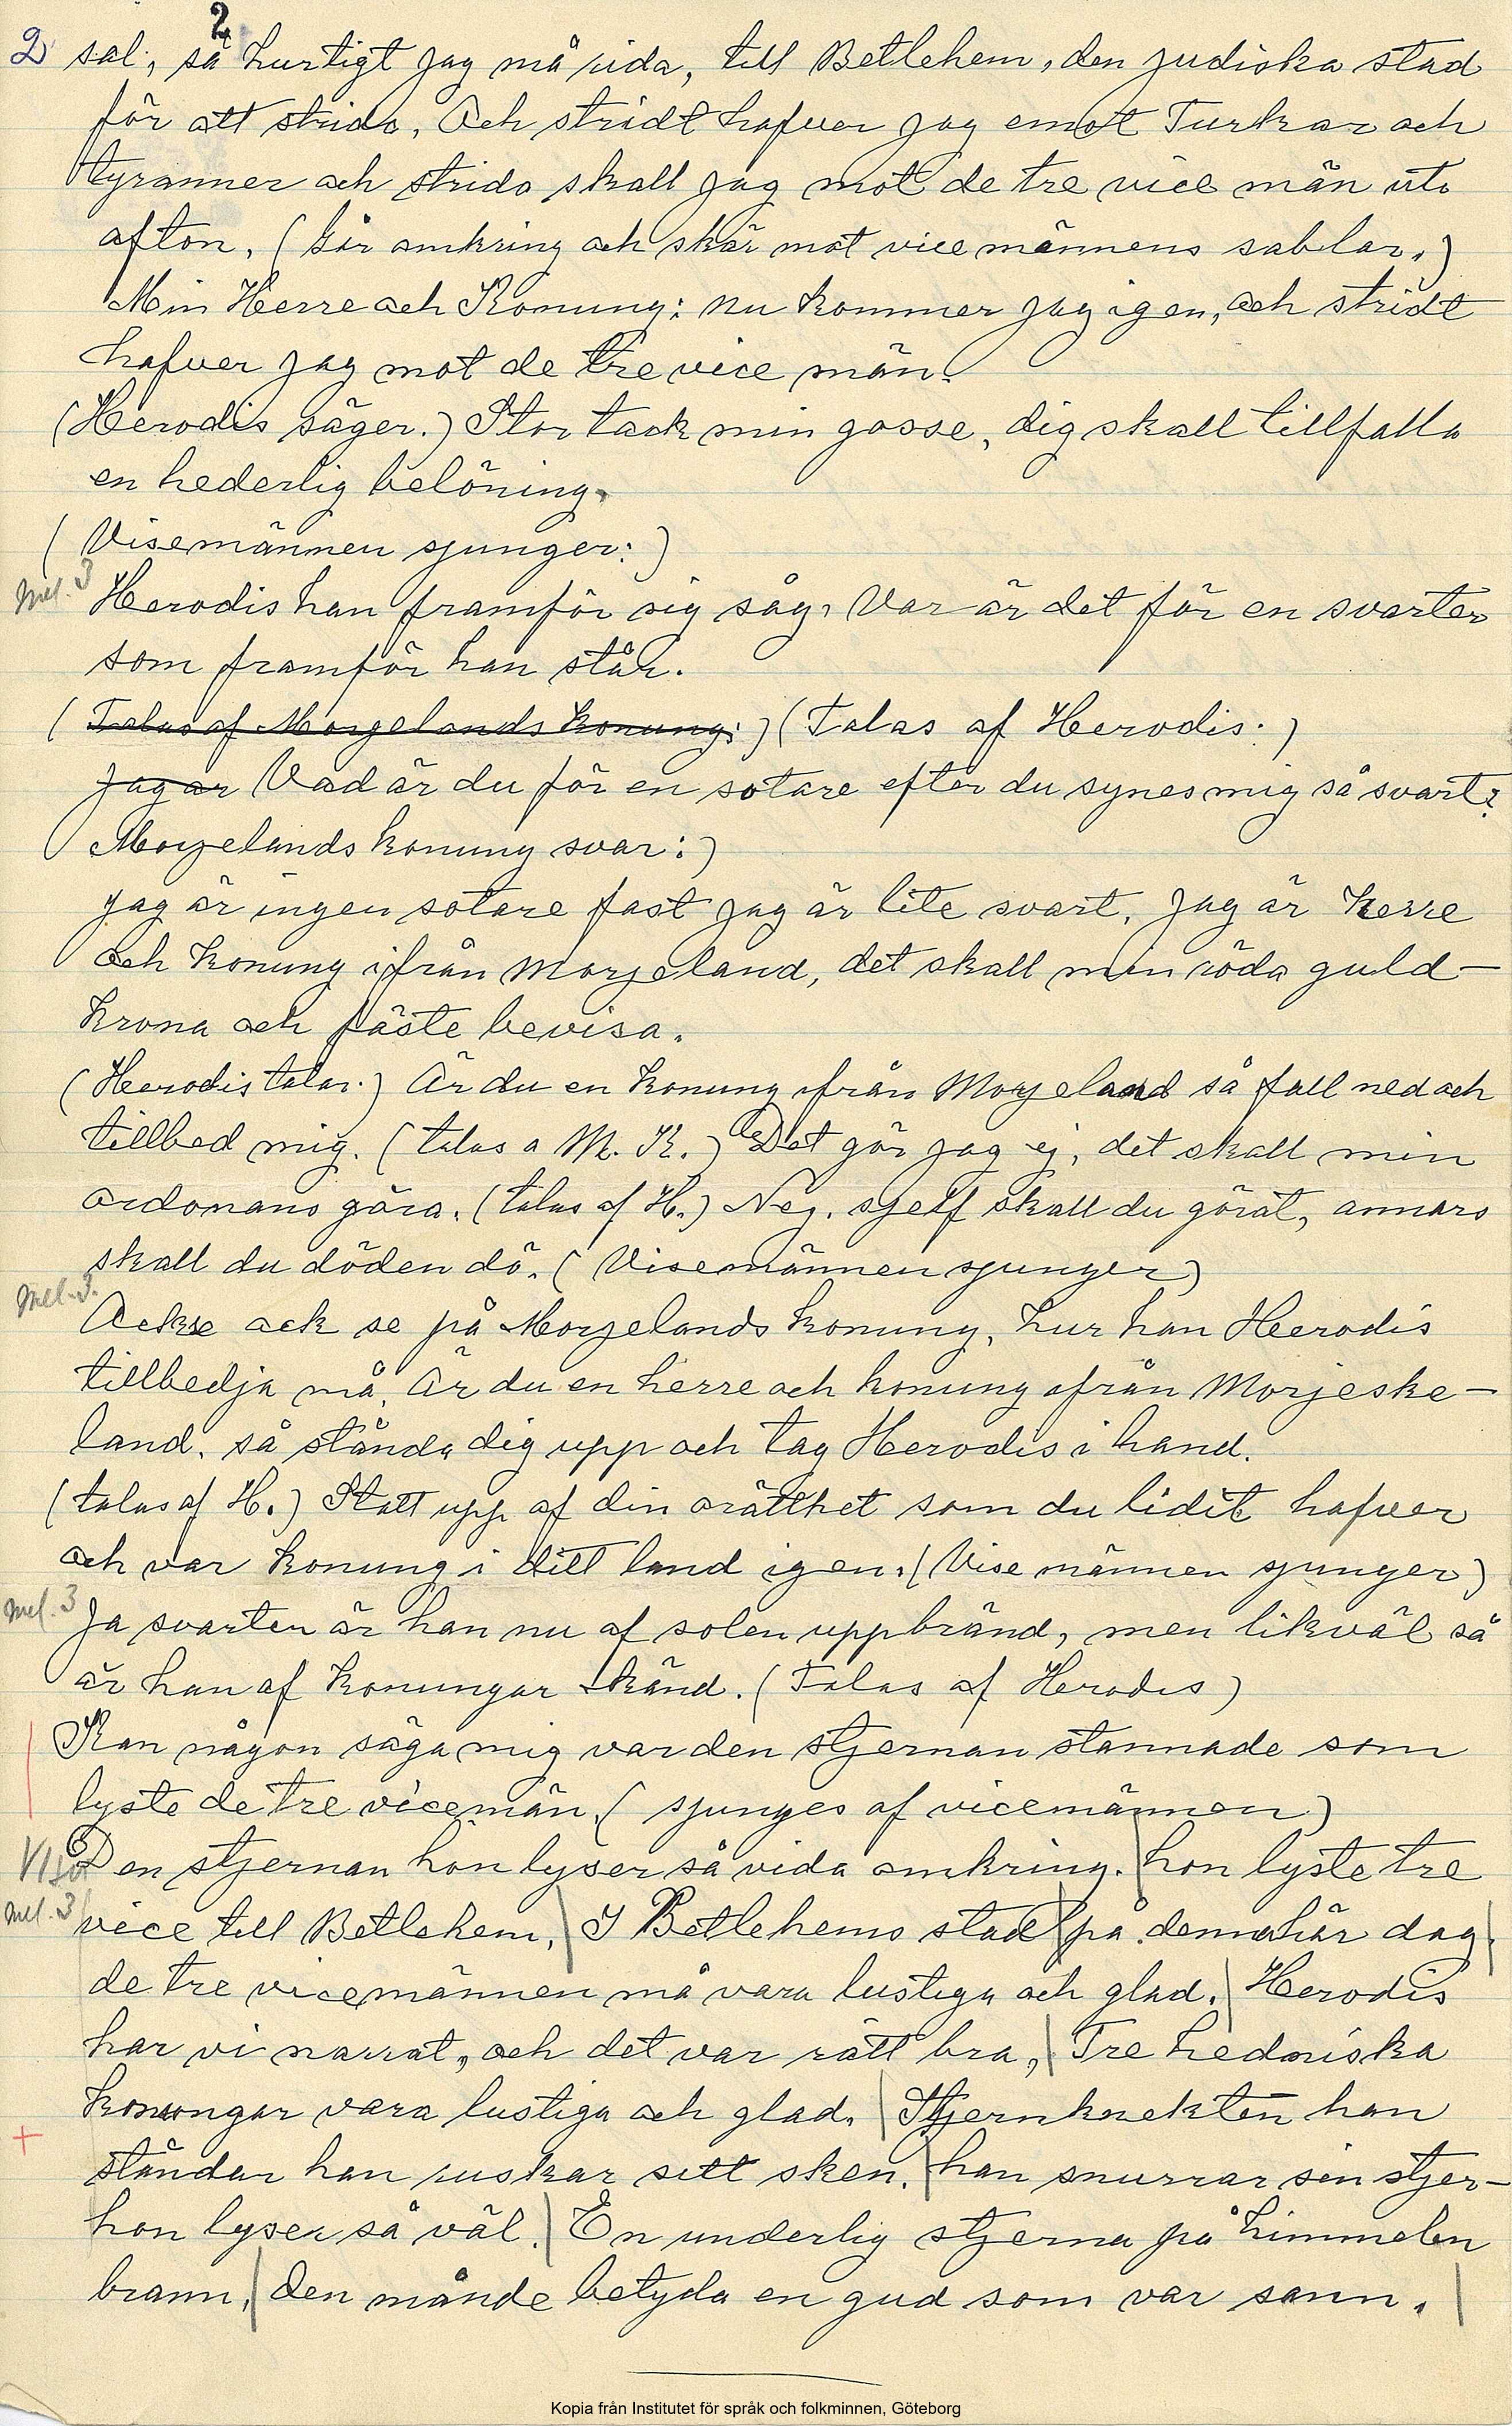 2
2 sal, så hurtigt jag må rida, till Betlehem, den judiska stad
för att strida. Och stridt hafver jag emot Turkar och
tyranner och strida skall jag mot de tre vice män uti
afton. (Går omkring och skär mot vicemännens sablar.)
Min Herre och Konung: nu kommer jag igen, och stridt
hafver jag mot de tre vice män.
(Herodis säger.) Stor tack min gosse, dig skall tillfalla
en hederlig belöning.
(Visemännen sjunger:)
Mel. 3 Herodis han framför sig såg, Var är det för en svarter
som framför han står.
(Talas af Morgelands konung:) (Talas af Herodis.)
Jag är Vad är du för en sotare efter du synes mig så svart?
Morjelands konung svar:)
Jag är ingen sotare fast jag är lite svart, Jag är herre
och konung ifrån Morjeland, det skall min röda guld-
krona och fäste bevisa.
(Herodis talar.) Är du en konung ifrån Morjeland så fall ned och
tillbed mig. (talas a M. K.) Det gör jag ej, det skall min
ordonans göra. (talas af H.) Nej, sjelf skall du göra't, annars
skall du döden dö. (Visemännen sjunger)
Mel. 3. Ack se ack se på Morjelands konung, hur han Herodis
tillbedja må. Är du en herre och konung ifrån Morjeske-
land, så stånda dig upp och tag Herodis i hand.
(talas af H.) Statt upp af din orätthet som du lidit hafver
och var konung i ditt land igen. (Vise männen sjunger)
Mel. 3 Ja svarten är han nu af solen uppbränd, men likväl så
är han af konungar känd. (Talas af Herodis)
Kan någon säga mig var den stjernan stannade som
lyste de tre vicemän. (sjunges af vicemännen)
Visa Den stjernan hon lyser så vida omkring. | hon lyste tre
Mel. 3 vice till Betlehem, | I Betlehems stad | på denna här dag, |
de tre vicemännen må vara lustiga och glad. | Herodis
har vi narrat, och det var rätt bra, | Tre hedniska
konungar vara lustiga och glad. | Stjernknekten han
+ ståndar han ruskar sitt sken, | han snurrar sin stjer-
hon lyser så väl. | En underlig stjerna på himmelen
brann, | den månde betyda en gud som var sann. |
Kopia från Institutet för språk och folkminnen, Göteborg